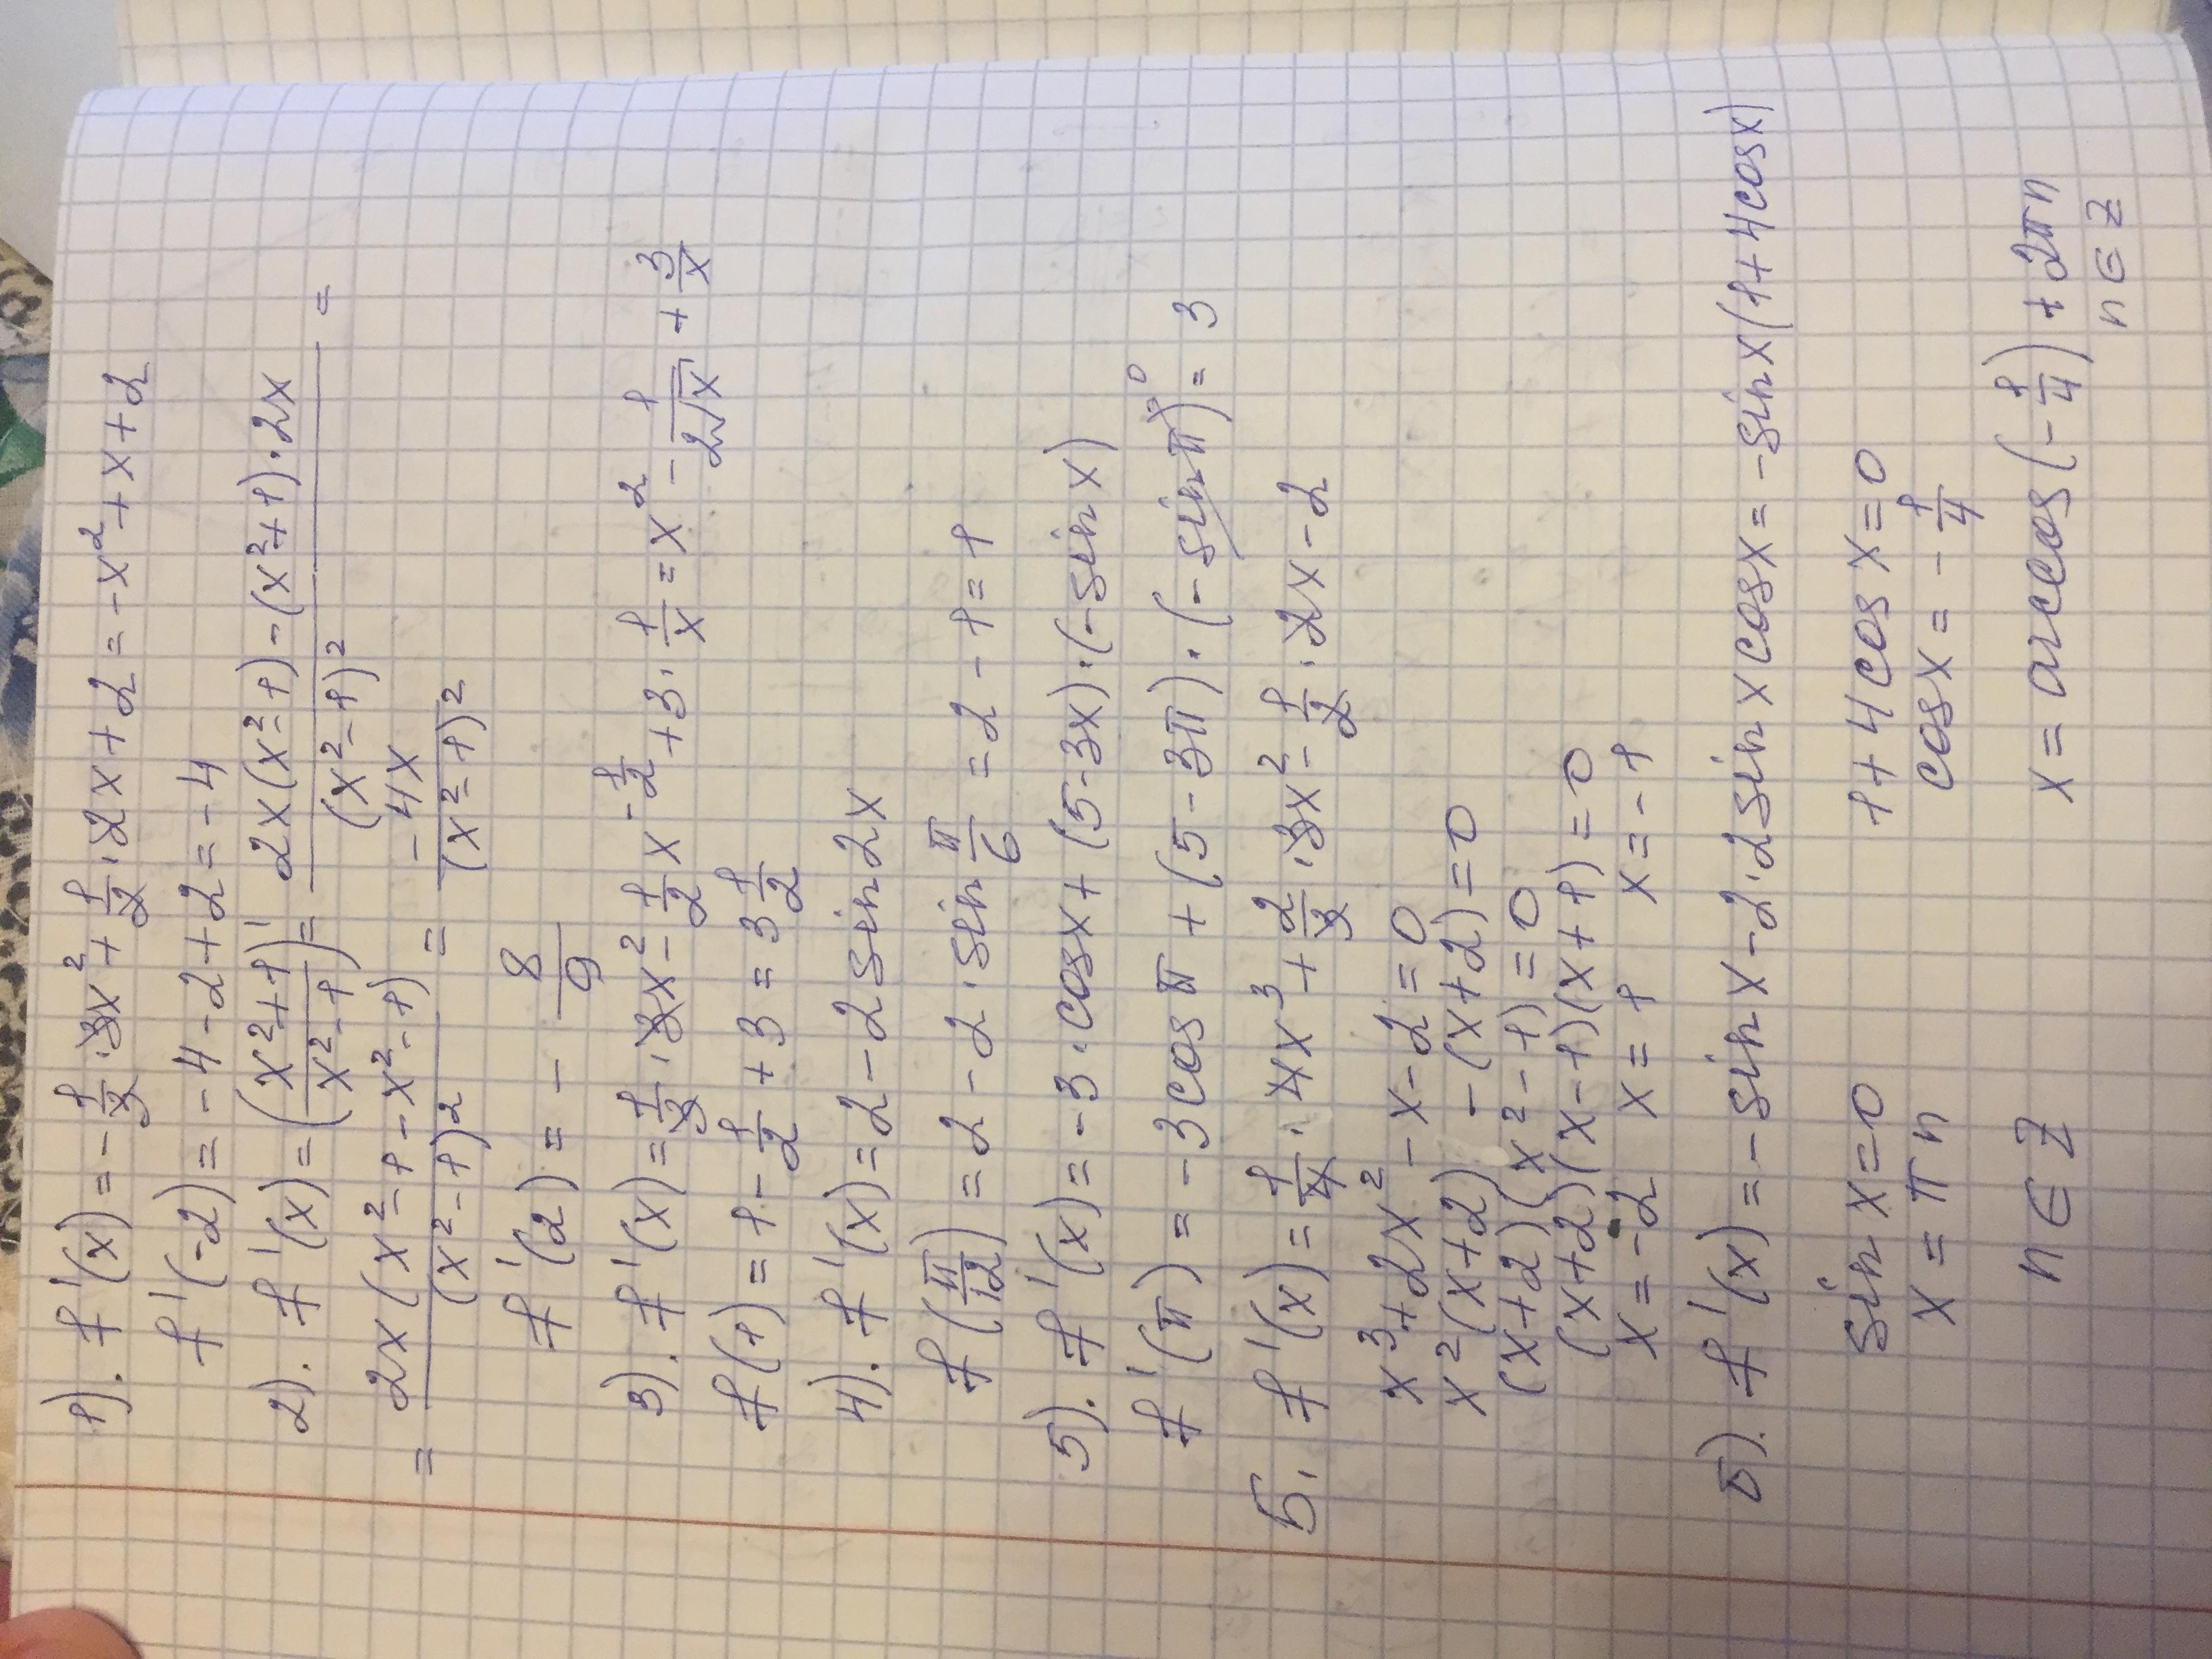 1). f'(x) = -1/3 · 3x² + 1/2 · 2x + 2 = -x² + x + 2
f'(-2) = -4 - 2 + 2 = -4
2). f'(x) = ((x²+1)/(x²-1))' = (2x(x²-1) - (x²+1)·2x)/(x²-1)² =
= (2x(x²-1-x²-1))/(x²-1)² = (-4x)/(x²-1)²
f'(2) = -8/9
3). f'(x) = 1/3 · 3x² - 1/2 x^(-1/2) + 3 · 1/x = x² - 1/(2√x) + 3/x
f(1) = 1 - 1/2 + 3 = 3 1/2
4). f'(x) = 2 - 2 sin 2x
f(π/12) = 2 - 2 · sin π/6 = 2 - 1 = 1
5). f'(x) = -3 · cos x + (5-3x) · (-sin x)
f'(π) = -3 cos π + (5-3π) · (-sin π)⁰ = 3
5. f'(x) = 1/4 · 4x³ + 2/3 · 3x² - 1/2 · 2x - 2
x³ + 2x² - x - 2 = 0
x²(x+2) - (x+2) = 0
(x+2)(x²-1) = 0
(x+2)(x-1)(x+1) = 0
x = -2 x = 1 x = -1
б). f'(x) = -sin x - 2·2 sin x cos x = -sin x(1+4cos x)
sin x = 0 1 + 4 cos x = 0
x = πn cos x = -1/4
n ∈ Z x = arccos(-1/4) + 2πn
n ∈ Z